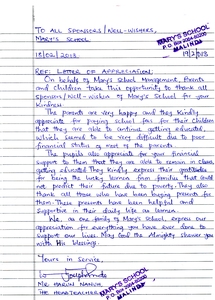 TO ALL SPONSORS/WELL-WISHERS,
MARY'S SCHOOL
MARY'S SCHOOL
P.O BOX
MALINDI
18/02/2018.
19/2/2018
REF: LETTER OF APPRECIATION.
On behalf of Mary's School Management, Parents
and Children take this opportunity to thank all
Sponsors/Well-wishers of Mary's School for your
kindness.
The parents are very happy and they kindly
appreciate for paying school fees for their children
that they are able to continue getting educated,
which seemed to be very difficult due to poor
financial status of most of the parents.
The pupils also appreciate for your financial
support to them that they are able to remain in class
getting educated. They kindly express their gratitudes
for being the lucky women from families that could
not predict their future due to poverty. They also
thank all those who have been buying parents for
them. These presents have been helpful and
supportive in their daily life as women.
We, as one family of Mary's School, express our
appreciation for everything you have ever done to
support our lives. May God the Almighty shower you
with His blessings.
Yours in service,
MARY'S SCHOOL
P.O BOX
MALINDI
MR. HARUN
THE HEADTEACHER